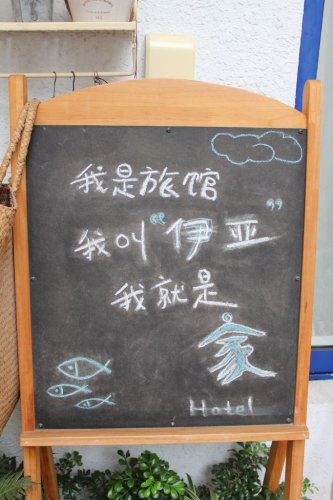 我是旅馆
我叫“伊亚”
我就是
家
Hotel